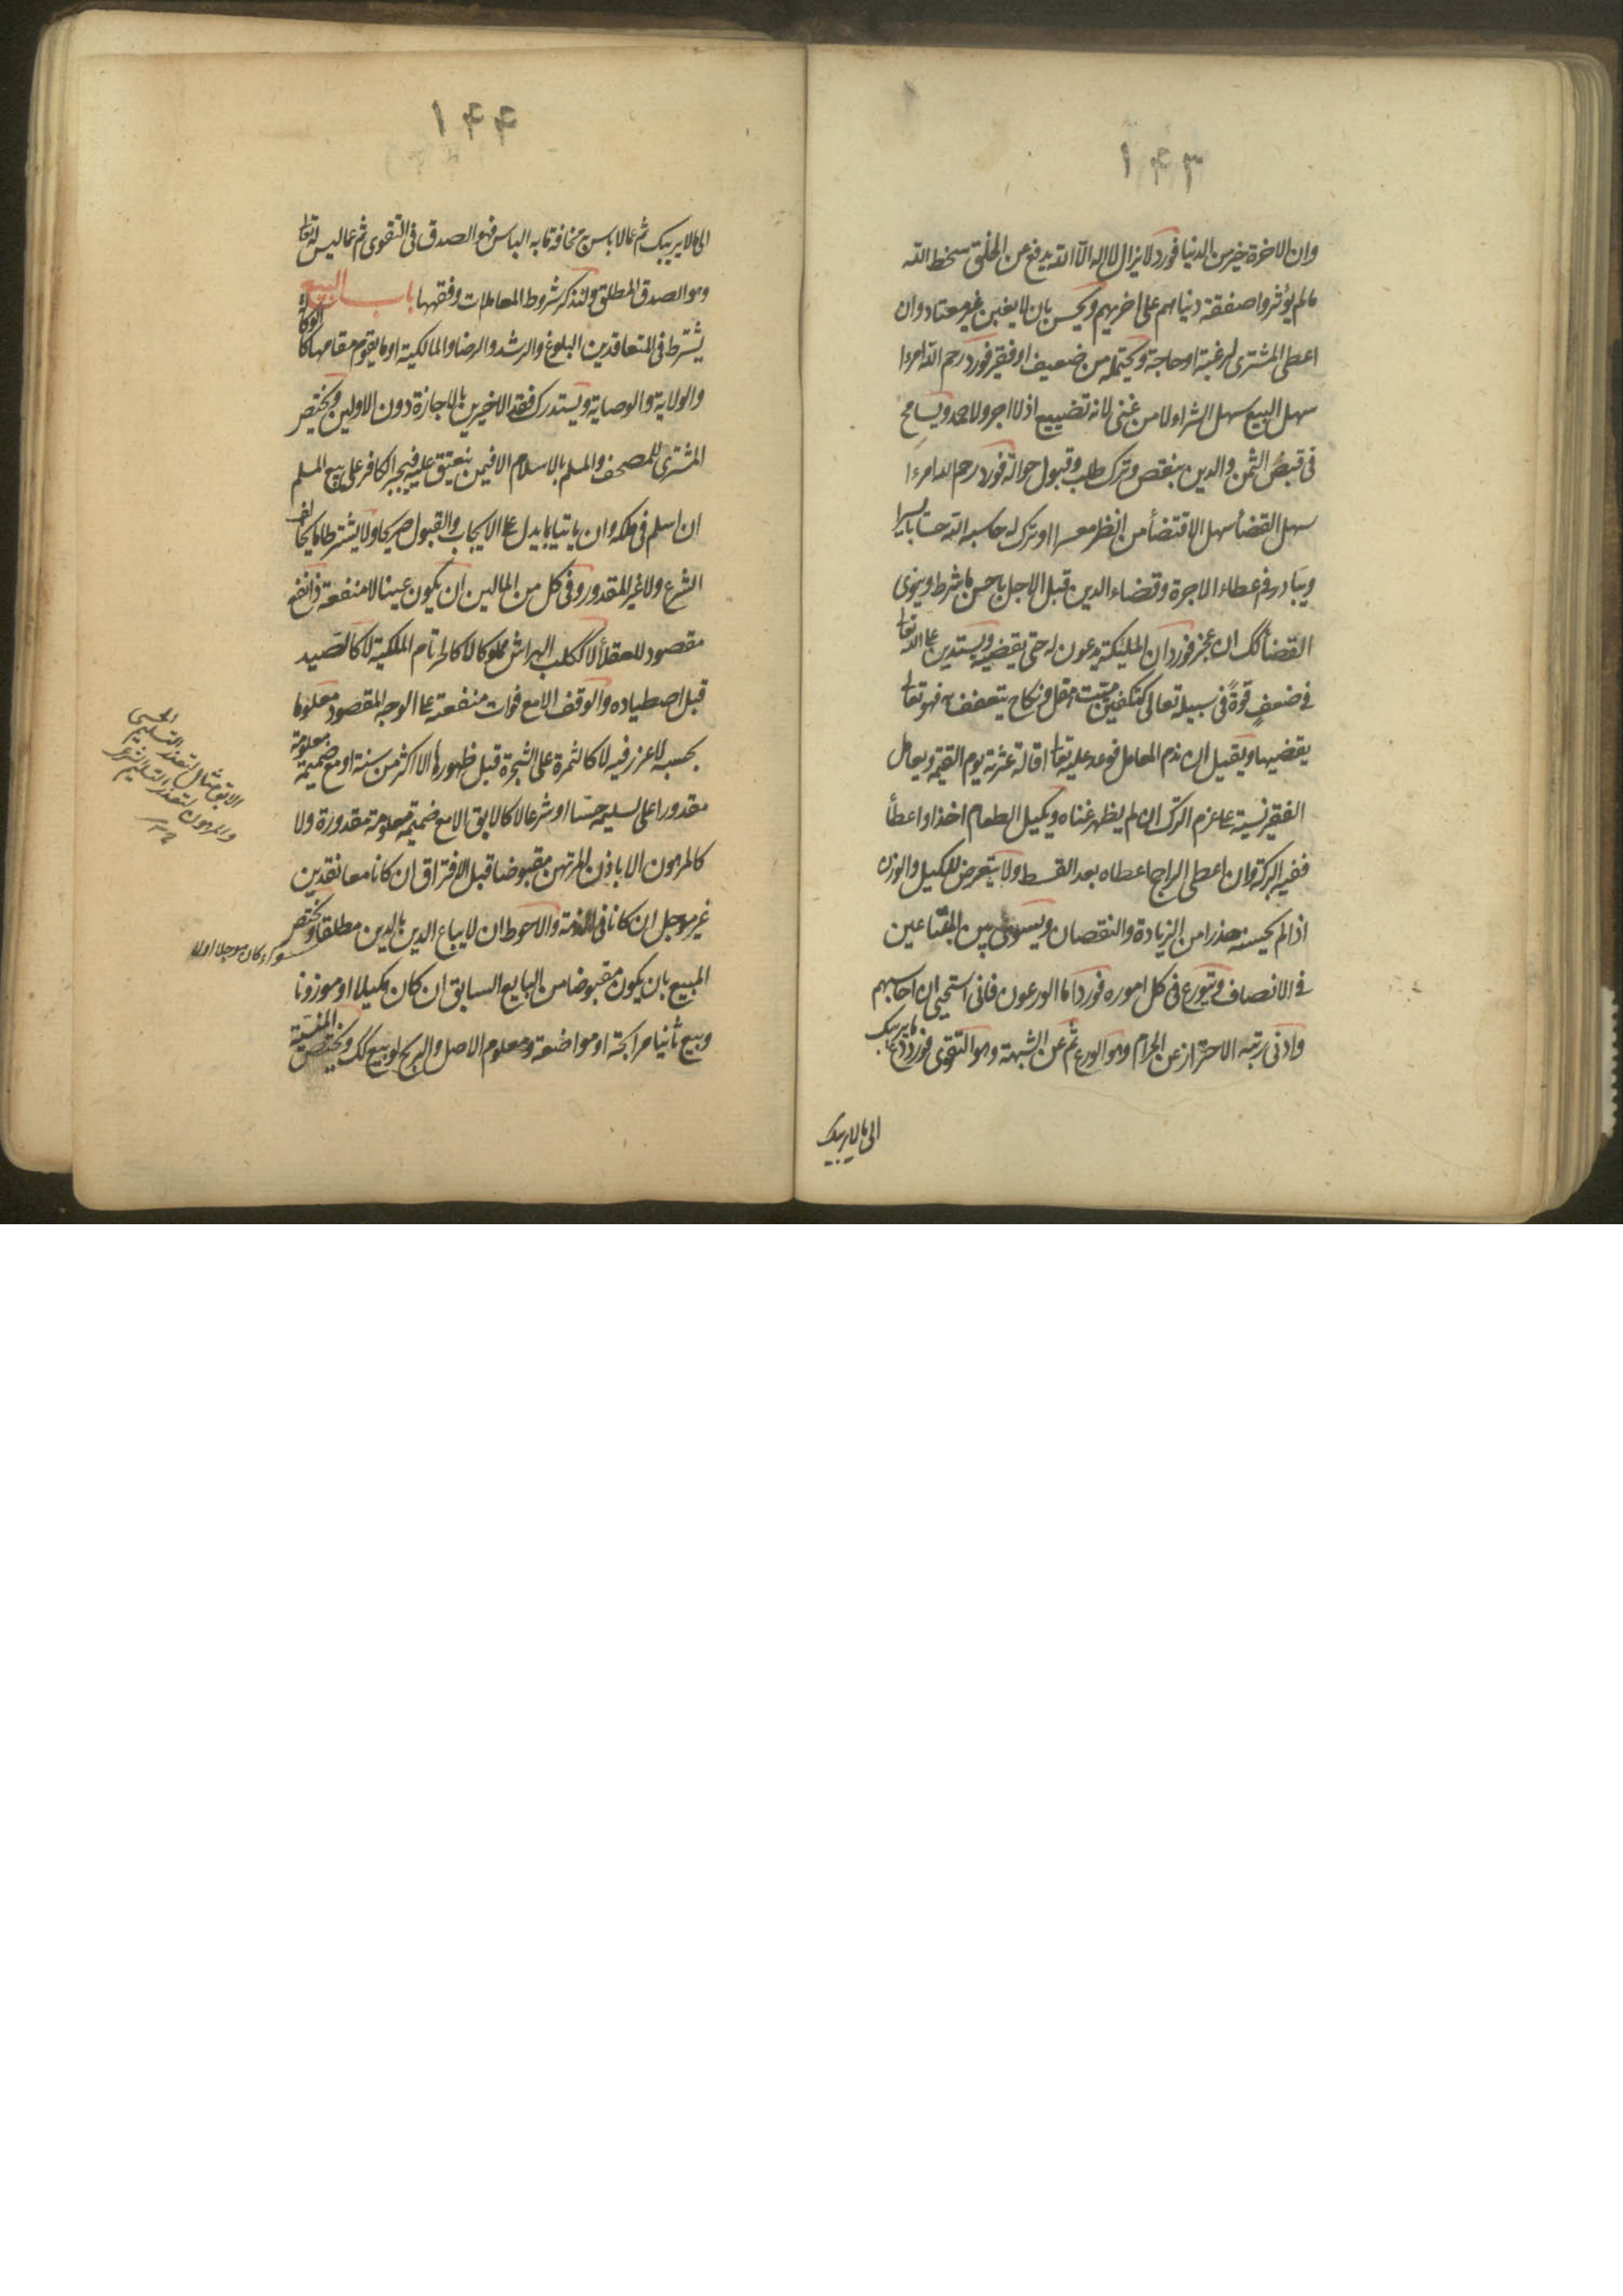 ١۴٣
وان الاخرة خير من الدنيا فورد لا يزال لا اله الا الله يدفع عن الخلق سخط الله
ما لم يؤثروا صفقة دنياهم على اخريهم ويحسن بان لا يغبن غير معتاد وان
اعطى المشترى لرغبة او حاجة ويحتمله من ضعيف او فقير فورد رحم الله امرءا
سهل البيع سهل الشراء ولا من غنى لانه تضييع اذ لا اجر ولا حمد ويسامح
فى قبض الثمن والدين بنقص وترك طلب وقبول حوالة فورد رحم الله امرءا
سهل القضأ سهل الاقتضأ من انظر معسرا او ترك له حاسبه الله حسابا يسيرا
ويبادر فى عطاء الاجرة وقضاء الدين قبل الاجل باحسن ما شرط وينوى
القضأ كك ان عجز فورد ان الملئكة يدعون له حتى يقضيه ويستدين على الله تعا
فى ضعف قوة فى سبيله تعالى كتكفين ميت مقل ونكاح يتعفف به فهو تعالى
يقضيها ويقيل ان ندم المعامل فوعد عليه تعا اقالة عثرته يوم القيمة ويعامل
الفقير نسية على عزم الترك ان لم يظهر غناه ويكيل الطعام اخذا واعطأ
ففيه البركة وان اعطى الراجح اعطاه بعد القسط ولا يتعرض للكيل والوزن
اذا لم يحسنه حذرا من الزيادة والنقصان ويسوى بين المبتاعين
فى الانصاف ويتورع فى كل اموره فورد اما الورعون فانى استحيى ان احاسبهم
وادنى رتبه الاحتراز عن الحرام وهو الورع ثم عن الشبهة وهو التقوى فورد دع ما يريبك
الى ما لا يريبك
١۴۴
الى ما لا يريبك ثم عما لا باس به مخافة ما به الباس فهو الصدق فى التقوى ثم عما ليس له تعا
وهو الصدق المطلق ولنذكر شروط المعاملات وفقهها باب البيع
يشترط فى المتعاقدين البلوغ والرشد والرضا والمالكية او ما يقوم مقامها كالوكالة
والولاية والوصاية ويستدرك فقد الاخيرين بالاجازة دون الاولين ويختص
المشترى للمصحف والمسلم بالاسلام الا فيمن ينعتق عليه فيجبر الكافر على بيع المسلم
ان اسلم فى ملكه وان ياتيا بما يدل على الايجاب والقبول صريحا ولا يشترطا ما يخالف
الشرع ولا غير المقدور وفى كل من المالين ان يكون عينا لا منفعة ذا نفع
مقصود للعقلأ لا ككلب الهراش مملوكا لا كالحر تام الملكية لا كالصيد
قبل اصطياده والوقف الا مع فوات منفعته على الوجه المقصود معلوما
بحسبه لا غرر فيه لا كالثمرة على الشجرة قبل ظهورها الا اكثر من سنة او مع ضميمة معلومة
مقدورا على تسليمه حسا او شرعا لا كالابق الا مع ضميمة معلومة مقدورة ولا
كالمرهون الا باذن المرتهن مقبوضا قبل الافتراق ان كانا معا نقدين
غير موجل ان كانا فى الذمة والاحوط ان لا يباع الدين بالدين مطلقا ويختص
المبيع بان يكون مقبوضا من البايع السابق ان كان مكيلا او موزونا
وبيع ثانيا مرابحة او مواضعة ومعلوم الاصل والربح لو بيع كك ويختص النسية
الابق مثال لتعذر التسليم الحسى
والمرهون لتعذر التسليم الشرعى
سواء كان موجلا اولا